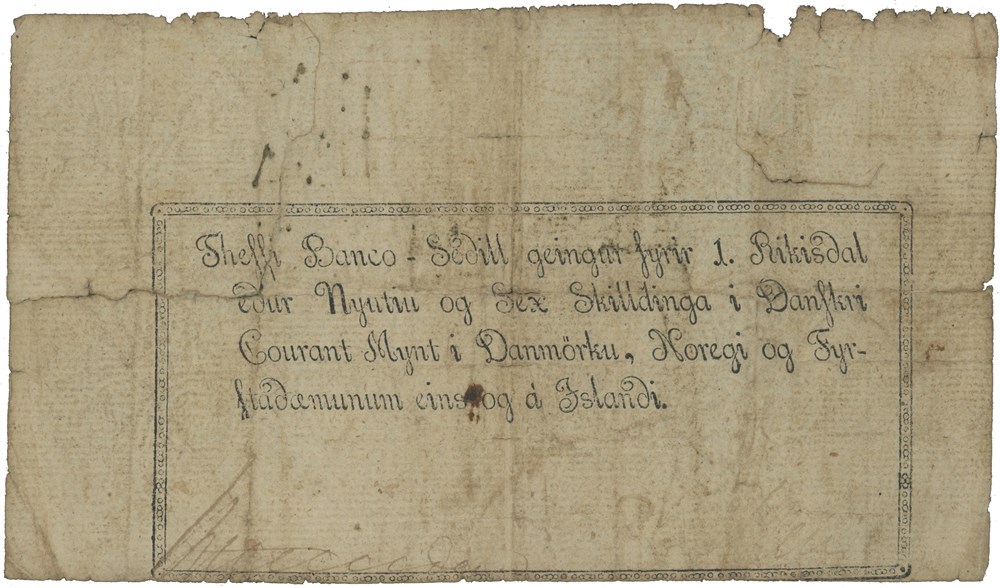 Theſſi Banco-Sedill geingur fyrir 1. Rikisdal
edur Nyutiu og Sex Skilldinga i Danſkri
Courant Mynt i Danmörku, Noregi og Fyr-
ſtadæmunum eins og á Islandi.